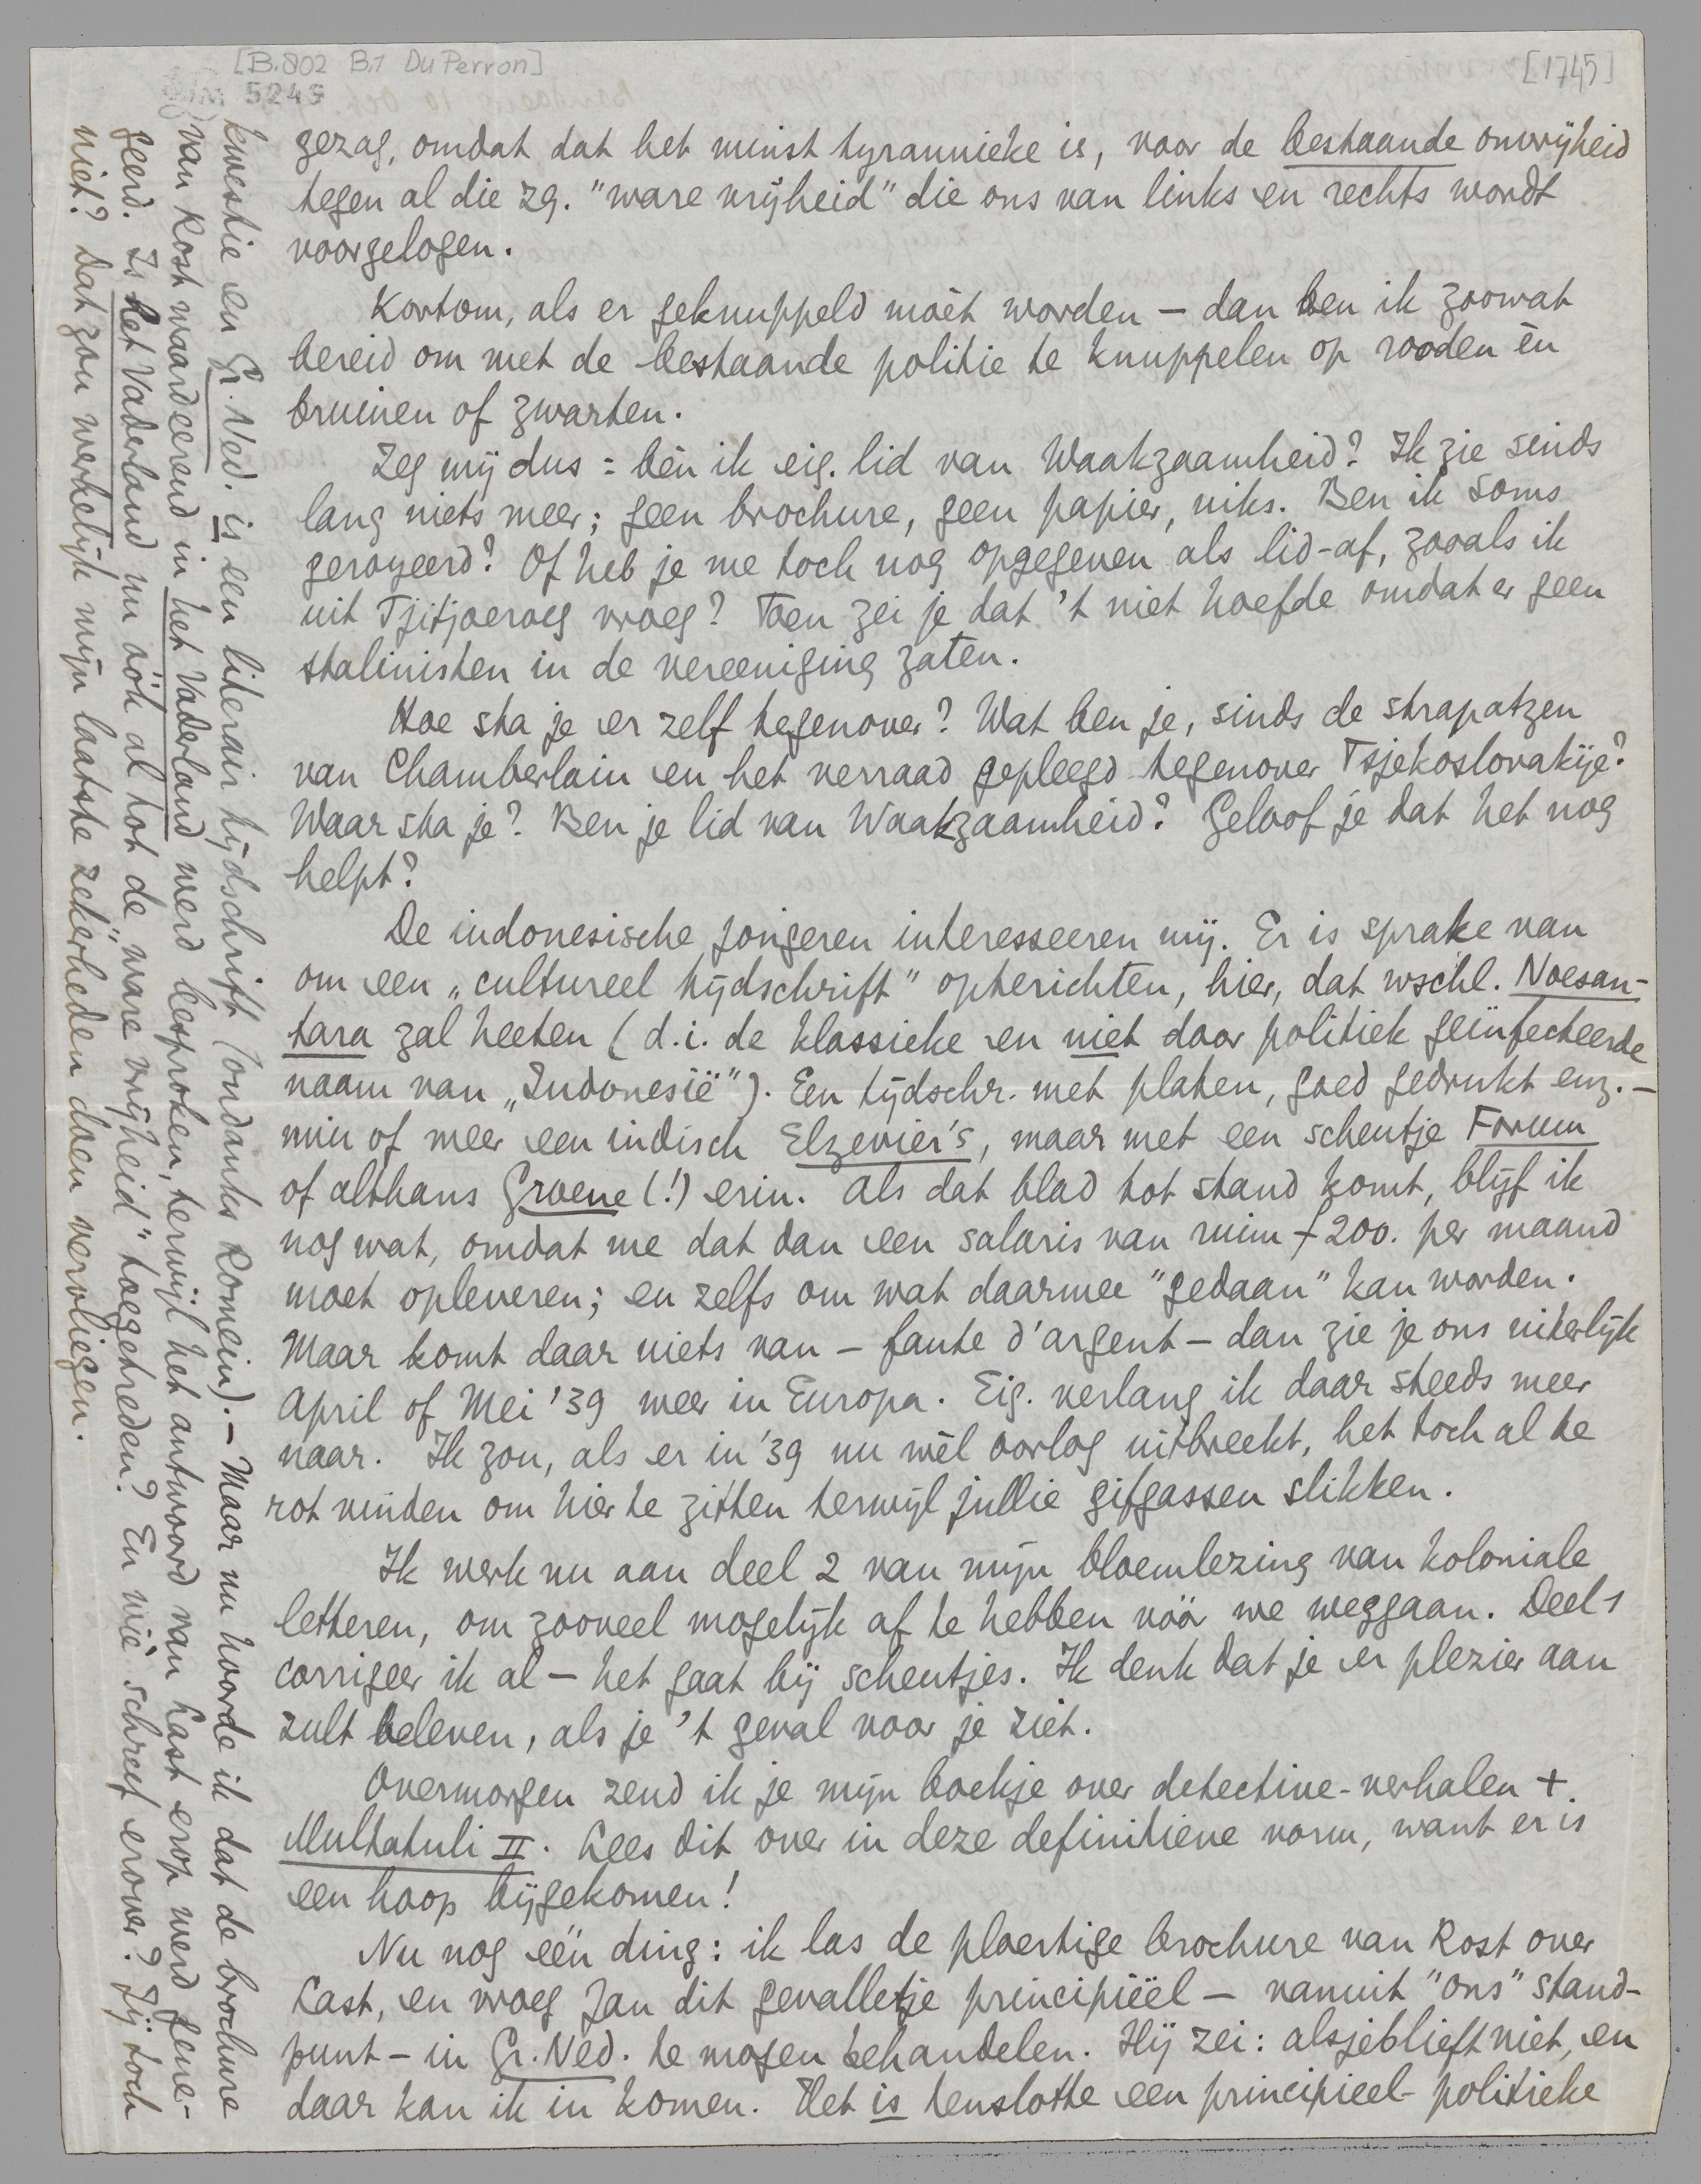 [B.802 B.1 Du Perron]
[1745]
5249
gezag, omdat dat het minst tyrannieke is, voor de bestaande onvrijheid
tegen al die zg. "ware vrijheid" die ons van links en rechts wordt
voorgelogen.
Kortom, als er geknuppeld móet worden – dan ben ik zoowat
bereid om met de bestaande politie te knuppelen op rooden én
bruinen of zwarten.
Zeg mij dus: bén ik eig. lid van Waakzaamheid? Ik zie sinds
lang niets meer; geen brochure, geen papier, niks. Ben ik soms
geroyeerd? Of heb je me toch nog opgegeven als lid-af, zooals ik
uit Tjitjoeroeg vroeg? Toen zei je dat 't niet hoefde omdat er geen
stalinisten in de vereeniging zaten.
Hoe sta je er zelf tegenover? Wat ben je, sinds de strapatzen
van Chamberlain en het verraad gepleegd tegenover Tsjekoslovakije?
Waar sta je? Ben je lid van Waakzaamheid? Geloof je dat het nog
helpt?
De indonesische jongeren interesseeren mij. Er is sprake van
om een „cultureel tijdschrift" opterichten, hier, dat wschl. Noesan-
tara zal heeten (d.i. de klassieke en niet door politiek geïnfecteerde
naam van „Indonesië"). Een tijdschr. met platen, goed gedrukt enz. –
min of meer een indisch Elzevier's, maar met een scheutje Forum
of althans Groene (!) erin. Als dat blad tot stand komt, blijf ik
nog wat, omdat me dat dan een salaris van ruim f 200. per maand
moet opleveren; en zelfs om wat daarmee "gedaan" kan worden.
Maar komt daar niets van – faute d'argent – dan zie je ons uiterlijk
April of Mei '39 weer in Europa. Eig. verlang ik daar steeds meer
naar. Ik zou, als er in '39 nu wél oorlog uitbreekt, het toch al te
rot vinden om hier te zitten terwijl jullie gifgassen slikken.
Ik werk nu aan deel 2 van mijn bloemlezing van koloniale
letteren, om zooveel mogelijk af te hebben vóór we weggaan. Deel 1
corrigeer ik al – het gaat bij scheutjes. Ik denk dat je er plezier aan
zult beleven, als je 't geval voor je ziet.
Overmorgen zend ik je mijn boekje over detective-verhalen +
Multatuli II. Lees dit over in deze definitieve vorm, want er is
een hoop bijgekomen!
Nu nog één ding: ik las de ploertige brochure van Rost over
Last, en vroeg Jan dit gevalletje principiëel – vanuit "ons" stand-
punt – in Gr. Ned. te mogen behandelen. Hij zei: alsjeblieft niet, en
daar kan ik in komen. Het is tenslotte een principieel-politieke
kwestie en Gr. Ned. is een literair tijdschrift (ondanks Romein). – Maar nu hoorde ik dat de brochure
van Rost waardeerend in het Vaderland werd besproken, terwijl het antwoord van Last erop werd gene-
geerd. Is het Vaderland nu óók al tot de "ware vrijheid" toegetreden? En wie schreef erover? Jij toch
niet? Dat zou werkelijk mijn laatste zekerheden doen vervliegen.